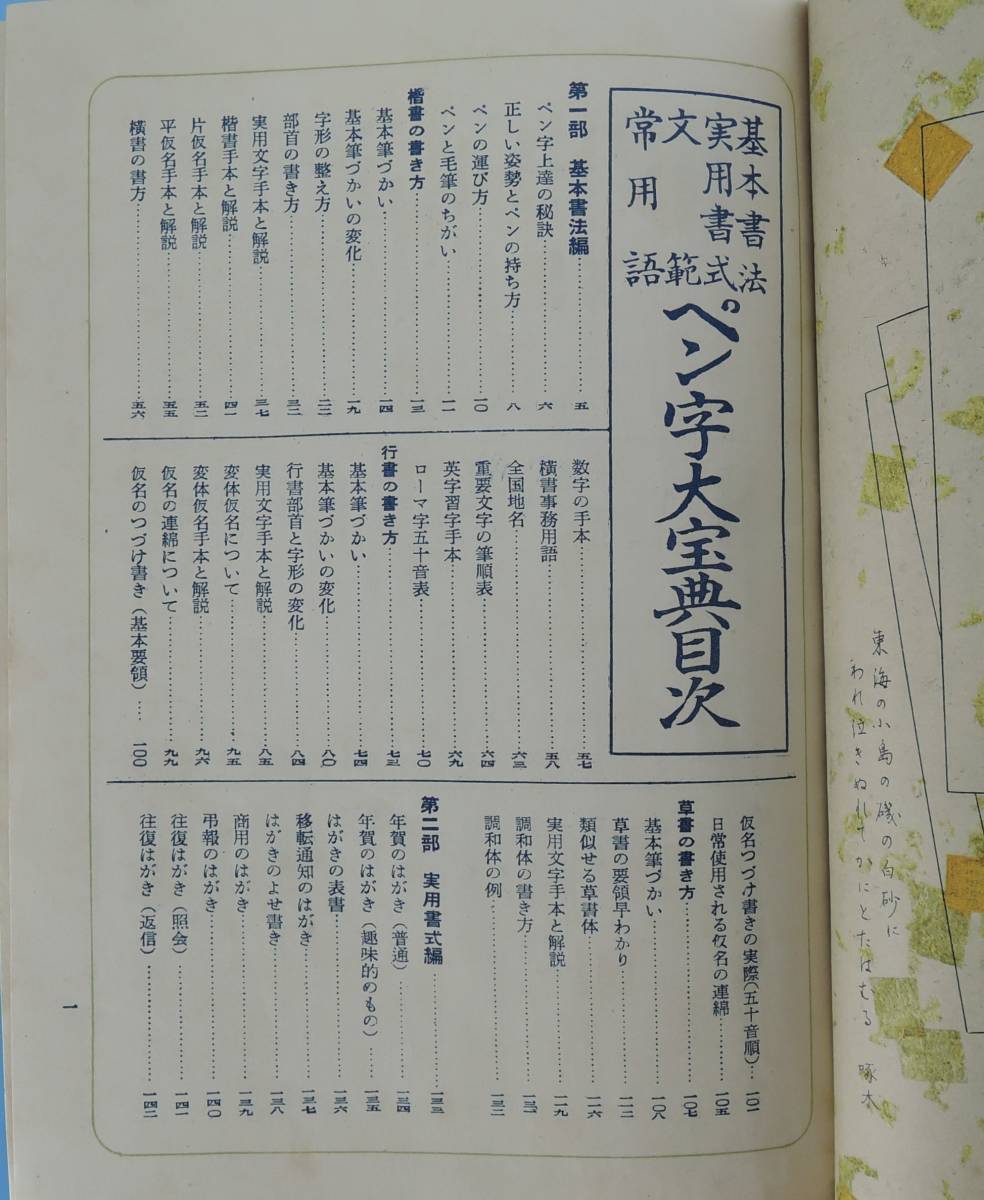 東海の小島の磯の白砂に
われ泣きぬれてかにとたはむる 啄木
基本書法
実用書式
文範
常用語
ペン字大宝典目次
第一部 基本書法編………五
ペン字上達の秘訣………六
正しい姿勢とペンの持ち方………八
ペンの運び方………一〇
ペンと毛筆のちがい………一一
楷書の書き方………一三
基本筆づかい………一四
基本筆づかいの変化………一九
字形の整え方………二二
部首の書き方………三二
実用文字手本と解説………三七
楷書手本と解説………四一
片仮名手本と解説………五二
平仮名手本と解説………五五
横書の書方………五六
数字の手本………五七
横書事務用語………五八
全国地名………六三
重要文字の筆順表………六四
英字習字手本………六九
ローマ字五十音表………七〇
行書の書き方………七三
基本筆づかい………七四
基本筆づかいの変化………八〇
行書部首と字形の変化………八四
実用文字手本と解説………八五
変体仮名について………九五
変体仮名手本と解説………九六
仮名の連綿について………九九
仮名のつづけ書き(基本要領)…一〇〇
仮名つづけ書きの実際(五十音順)…一〇一
日常使用される仮名の連綿………一〇五
草書の書き方………一〇七
基本筆づかい………一〇八
草書の要領早わかり………一一二
類似せる草書体………一一六
実用文字手本と解説………一一九
調和体の書き方………一三〇
調和体の例………一三二
第二部 実用書式編………一三三
年賀のはがき(普通)………一三四
年賀のはがき(趣味的のもの)……一三五
はがきの表書………一三六
移転通知のはがき………一三七
はがきのよせ書き………一三八
商用のはがき………一三九
弔報のはがき………一四〇
往復はがき(照会)………一四一
往復はがき(返信)………一四二
一